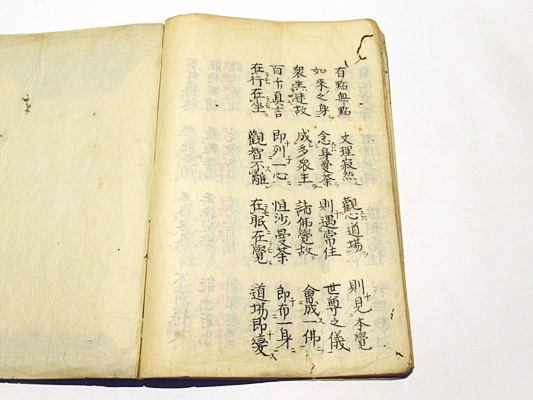 有點無點 文理寂然 觀心道場 則見本覺
如來之身 念身曼荼 則遇常住 世尊之儀
衆生迷故 成多衆生 諸佛覺故 會成一佛
百千真言 即列一心 恒沙曼荼 即布一身
在行在坐 觀智不離 在眠在覺 道場即